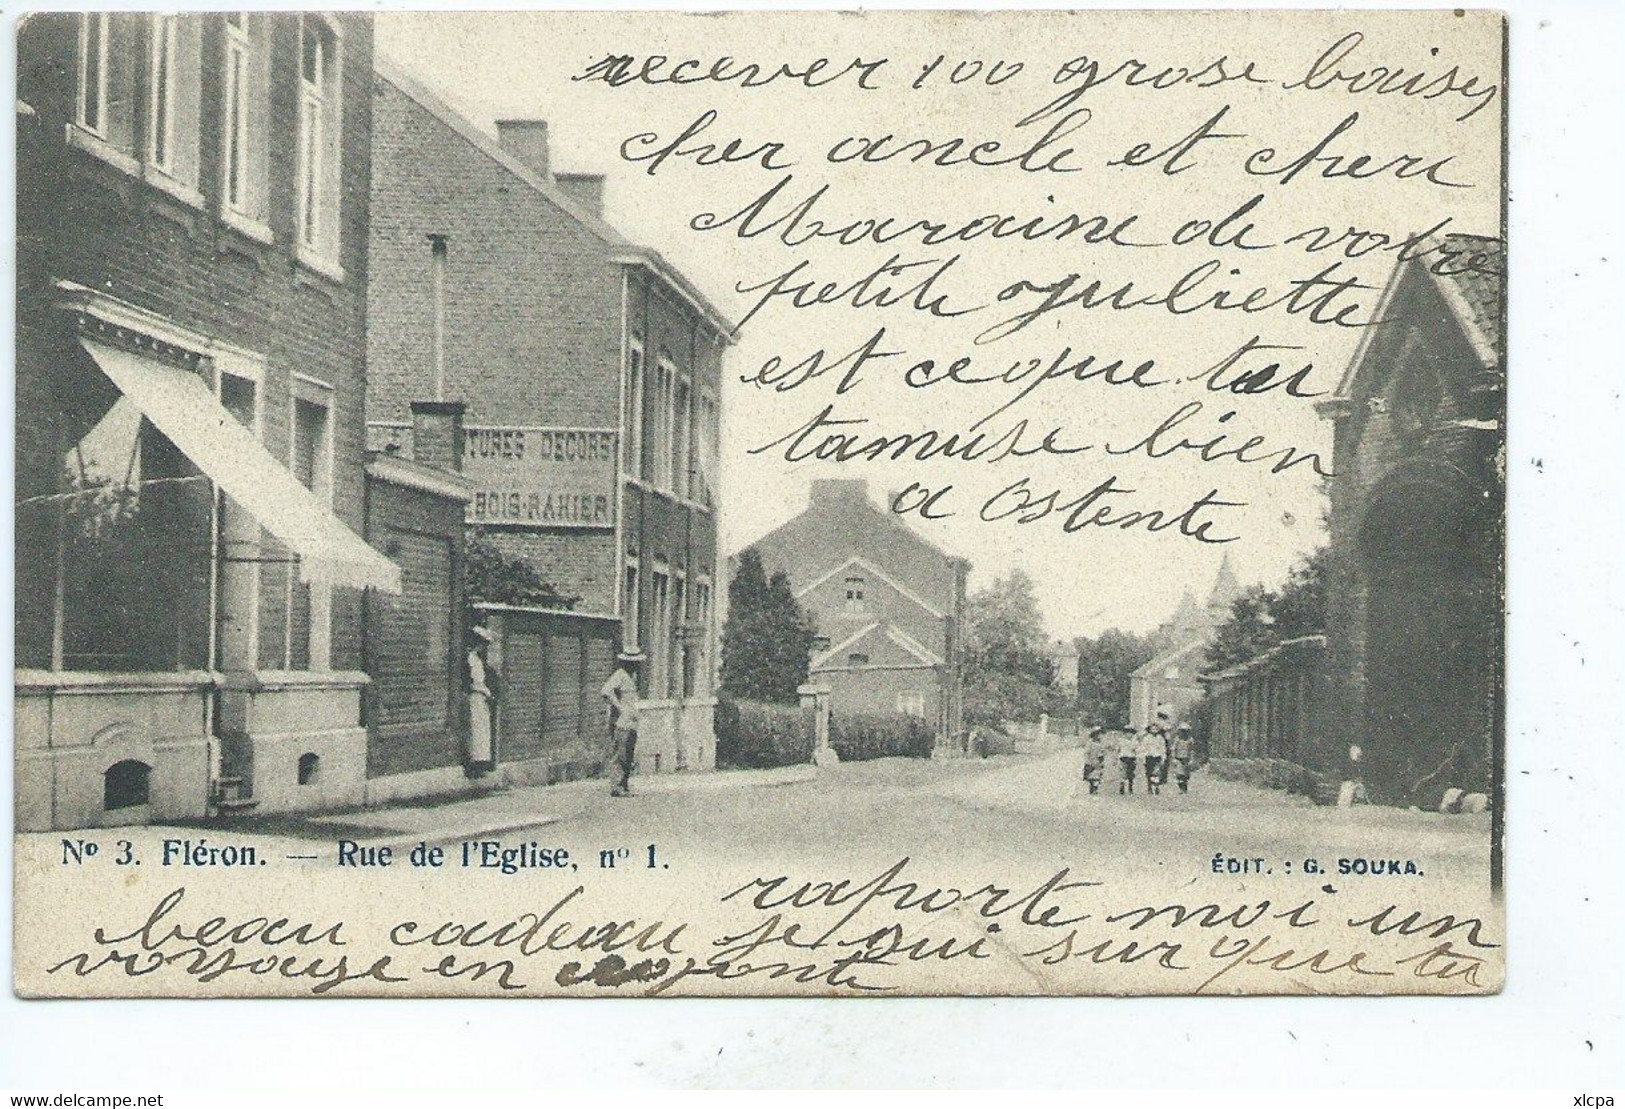 recever 100 grose baises
cher oncle et cheri
Maraine de votre
petite Juliette
est ce que tu
tamuse bien
a Ostente
TURES DECORS
BOIS-RAHIER
Nº 3. Fléron. — Rue de l'Eglise, nº 1.
ÉDIT. : G. SOUKA.
raporte moi un
beau cadeau je sui sur que tu
voyage en
delcampe.net
xlcpa